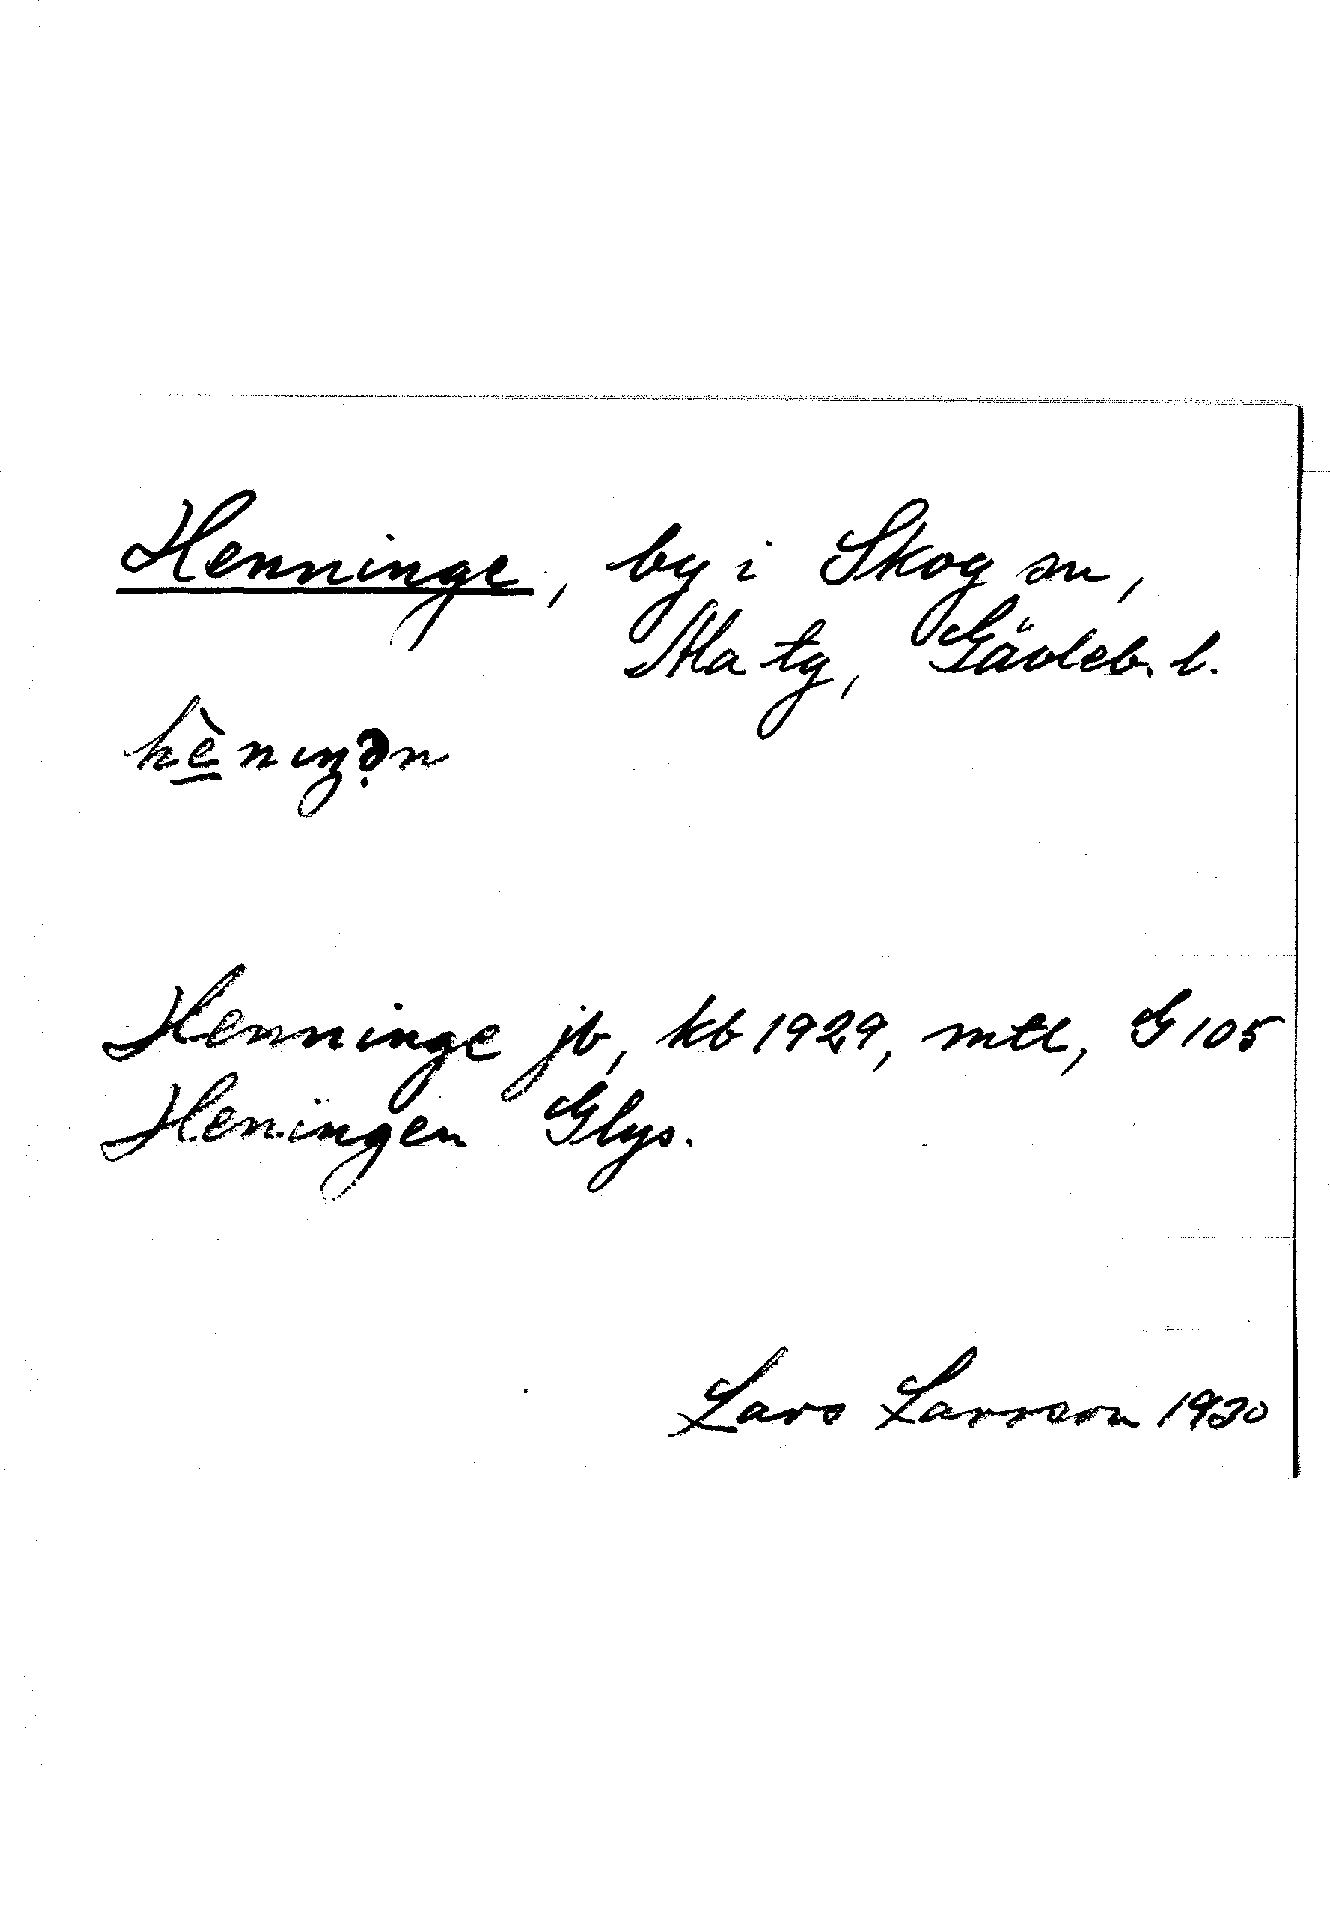 Henninge, by i Skog sn,
Ala tg, Gävleb. l.
hèniŋən
Henninge jb, kb 1929, mtl, G 105
Heningen Glys.
Lars Larsson 1930